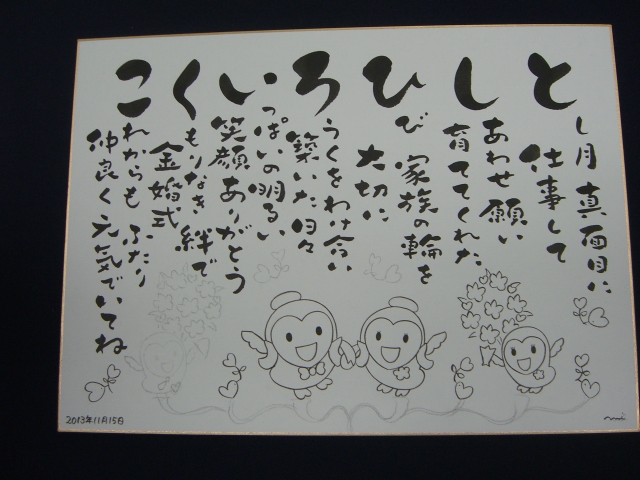 とし月 真面目に
仕事して
しあわせ願い
育ててくれた
ひび 家族の輪を
大切に
ろうくをわけ合い
築いた日々
いっぱいの明るい
笑顔ありがとう
くもりなき絆で
金婚式
これからも ふたり
仲良く元気でいてね
2013年11月15日